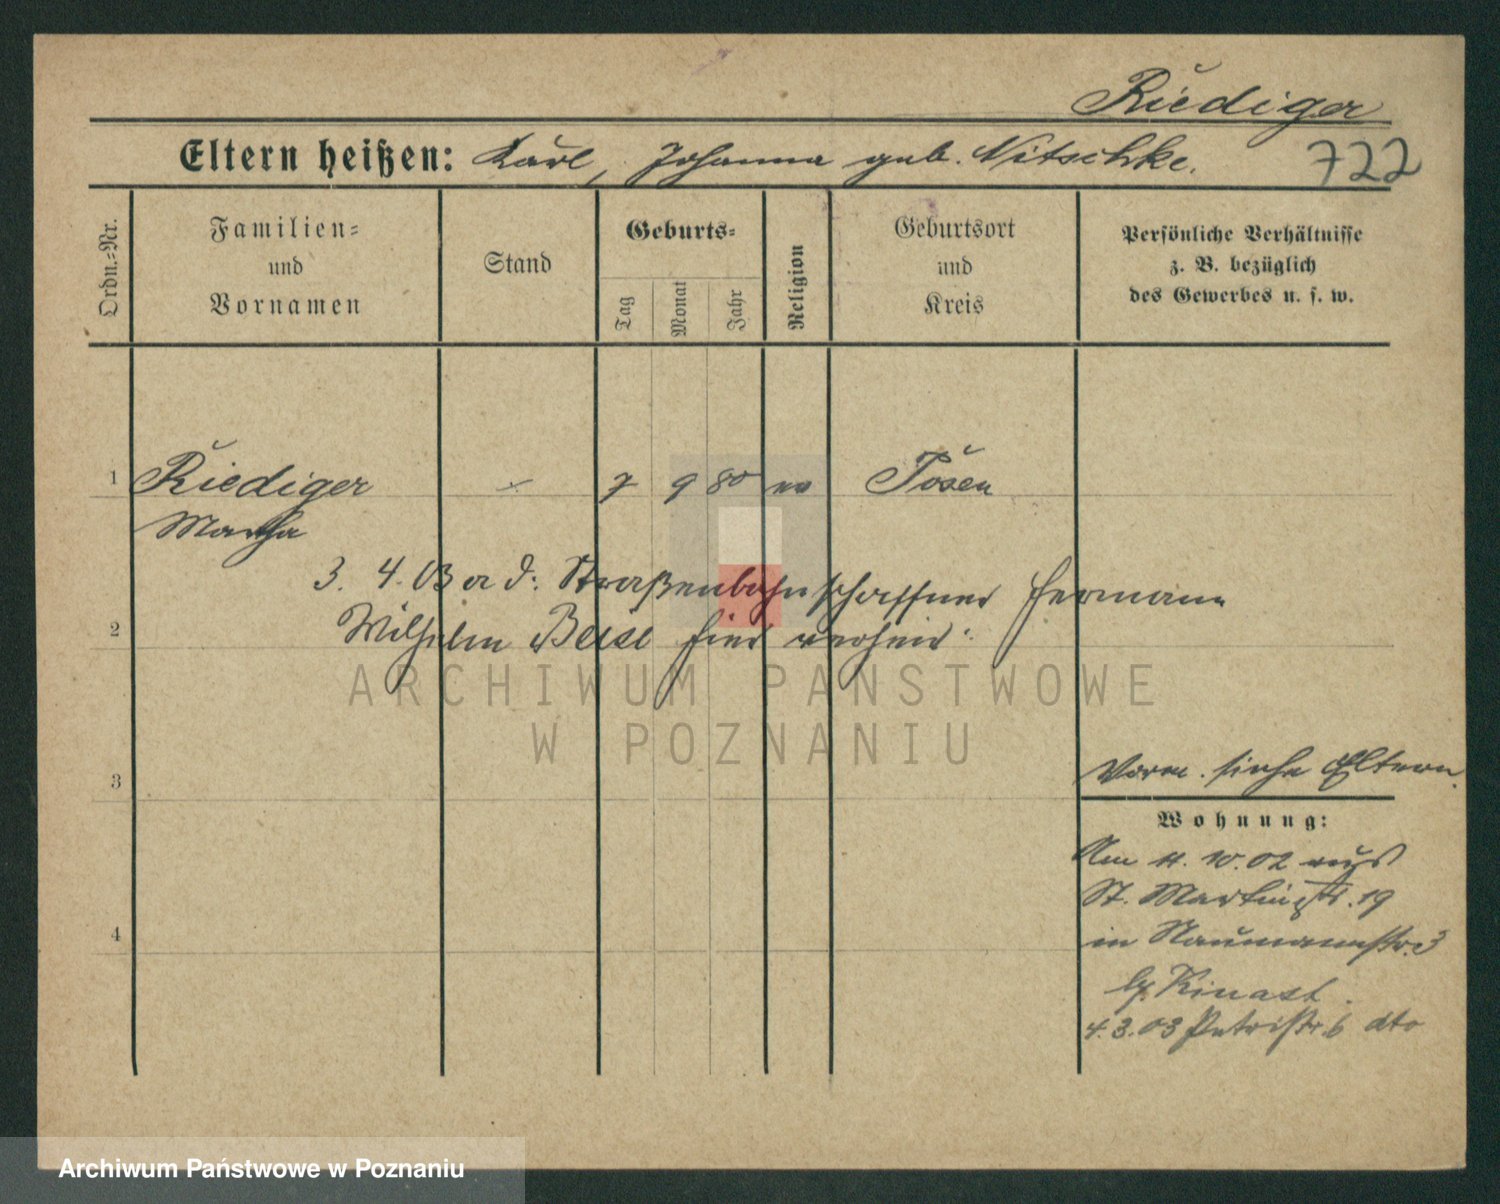 Riediger
Eltern heißen: Karl, Johanna geb. Nitschke.
722
Ordn.-Nr.
Familien-
und
Vornamen
Stand
Geburts-
Tag
Monat
Jahr
Religion
Geburtsort
und
Kreis
Persönliche Verhältnisse
z. B. bezüglich
des Gewerbes u. s. w.
1 Riediger 7 9 80 ev Posen
Martha
3. 4. 03 a d: Straßenbahnschaffner Hermann
2 Wilhelm hier verheir:
3
Vorm. siehe Eltern.
Wohnung:
Am 4. 10. 02 aus
St. Martinstr. 19
in Naumannstr. 3
4
b/ Kinast.
4. 3. 03 Petristr. 6 dto
ARCHIWUM PAŃSTWOWE
W POZNANIU
Archiwum Państwowe w Poznaniu